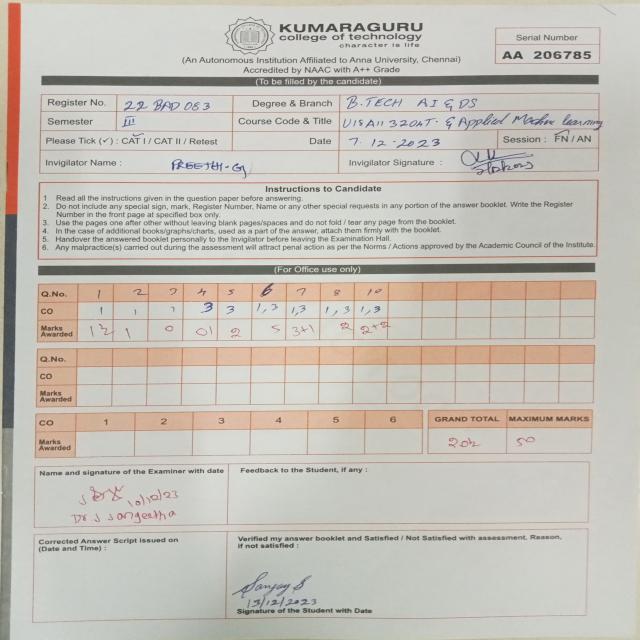 KUMARAGURU
college of technology
character is life
Serial Number
AA 206785
(An Autonomous Institution Affiliated to Anna University, Chennai)
Accredited by NAAC with A++ Grade
(To be filled by the candidate)
Register No. 22 BAD 083 Degree & Branch B.TECH AI & DS
Semester III Course Code & Title Applied Machine learning
Please Tick (✓) : CAT I / CAT II / Retest Date 7.12.2023 Session : FN / AN
Invigilator Name : PREETHI-G Invigilator Signature :
Instructions to Candidate
1 Read all the instructions given in the question paper before answering.
2. Do not include any special sign, mark, Register Number, Name or any other special requests in any portion of the answer booklet. Write the Register
Number in the front page at specified box only.
3. Use the pages one after other without leaving blank pages/spaces and do not fold / tear any page from the booklet.
4. In the case of additional books/graphs/charts, used as a part of the answer, attach them firmly with the booklet.
5. Handover the answered booklet personally to the Invigilator before leaving the Examination Hall.
6. Any malpractice(s) carried out during the assessment will attract penal action as per the Norms / Actions approved by the Academic Council of the Institute.
(For Office use only)
Q.No. 1 2 3 4 5 6 7 8 9 10
CO 1 1 1 3 3 1,3 1,3 1,3 1,3
Marks
Awarded 1½ 1 0 01 2 5 3+1 2 2+2
Q.No.
CO
Marks
Awarded
CO 1 2 3 4 5 6 GRAND TOTAL MAXIMUM MARKS
Marks
Awarded 20½ 50
Name and signature of the Examiner with date
10/12/23
Dr J Sangeetha
Feedback to the Student, if any :
Corrected Answer Script issued on
(Date and Time) :
Verified my answer booklet and Satisfied / Not Satisfied with assessment. Reason,
if not satisfied :
Sanjay S
13/12/2023
Signature of the Student with Date